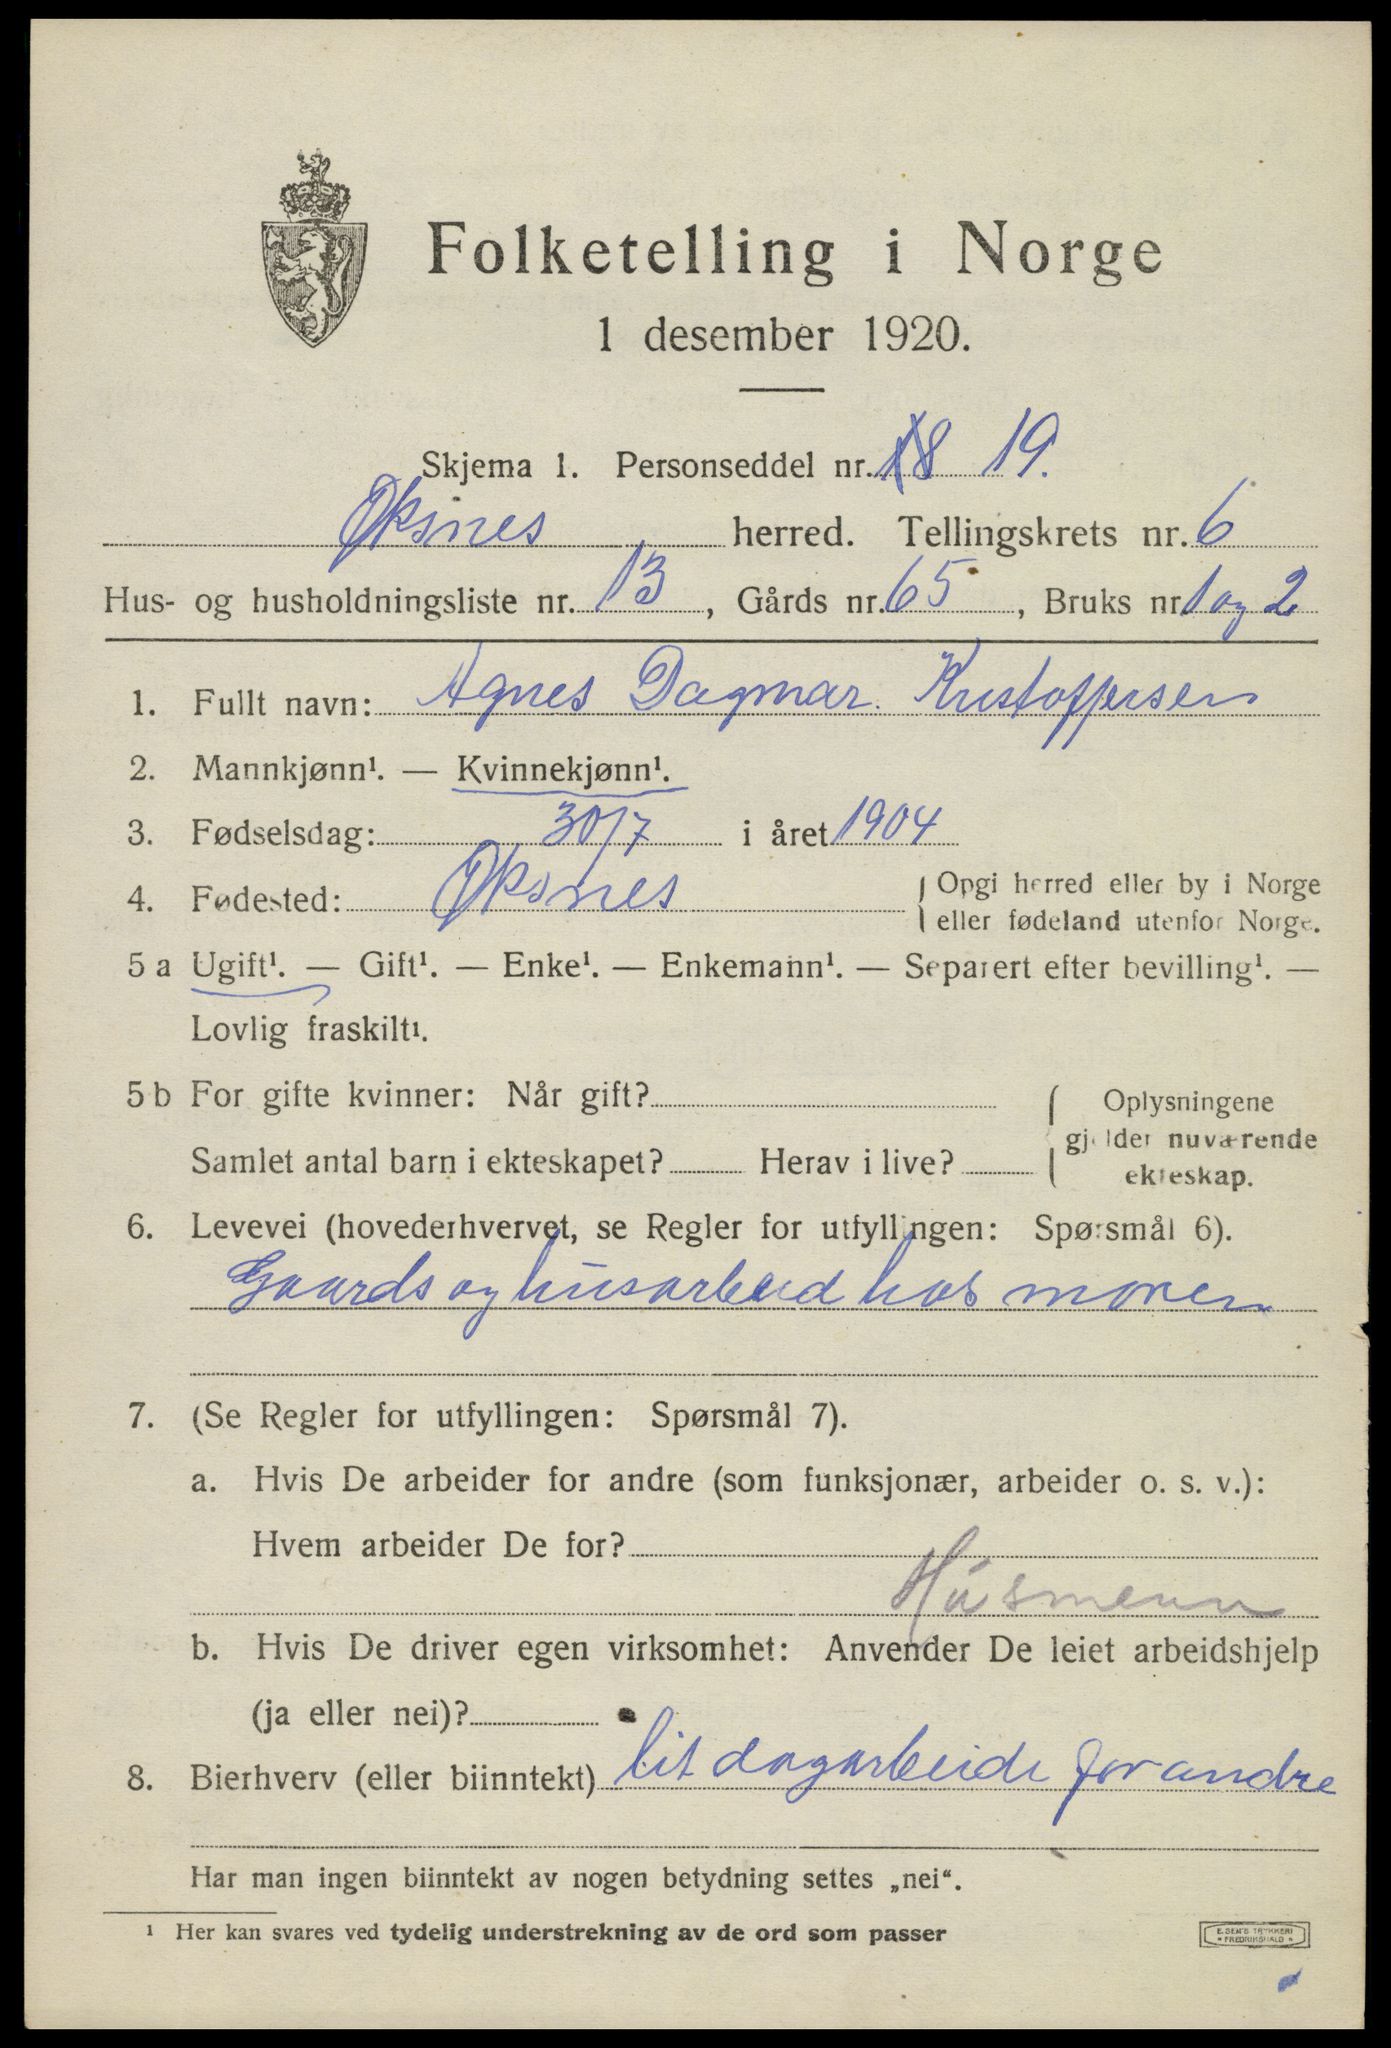 Folketelling i Norge
1 desember 1920.
Skjema 1. Personseddel nr. 18 19.
Øksnes herred. Tellingskrets nr. 6
Hus- og husholdningsliste nr. 13, Gårds nr. 65, Bruks nr. 1 og 2
1. Fullt navn: Agnes Dagmar. Kristoffersen
2. Mannkjønn¹. — Kvinnekjønn¹.
3. Fødselsdag: 30/7 i året 1904
4. Fødested: Øksnes { Opgi herred eller by i Norge
eller fødeland utenfor Norge.
5 a Ugift¹. — Gift¹. — Enke¹. — Enkemann¹. — Separert efter bevilling¹. —
Lovlig fraskilt¹.
5 b For gifte kvinner: Når gift? { Oplysningene
gjelder nuværende
Samlet antal barn i ekteskapet? Herav i live?
ekteskap.
6. Levevei (hovederhvervet, se Regler for utfyllingen: Spørsmål 6).
Gaards og husarbeid hos moren
7. (Se Regler for utfyllingen: Spørsmål 7).
a. Hvis De arbeider for andre (som funksjonær, arbeider o. s. v.):
Hvem arbeider De for?
Húsmenn
b. Hvis De driver egen virksomhet: Anvender De leiet arbeidshjelp
(ja eller nei)?
8. Bierhverv (eller biinntekt) lit dagarbeide for andre
Har man ingen biinntekt av nogen betydning settes „nei“.
¹ Her kan svares ved tydelig understrekning av de ord som passer
E. SEM'S TRYKKERI
* FREDRIKSHALD *